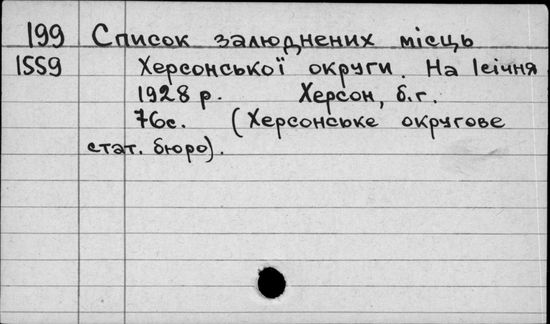 199 Список залюднених місць
1559 Херсонської округи. На 1 січня
1928 р. Херсон, б.г.
76с. (Херсонське округове
стат. бюро).